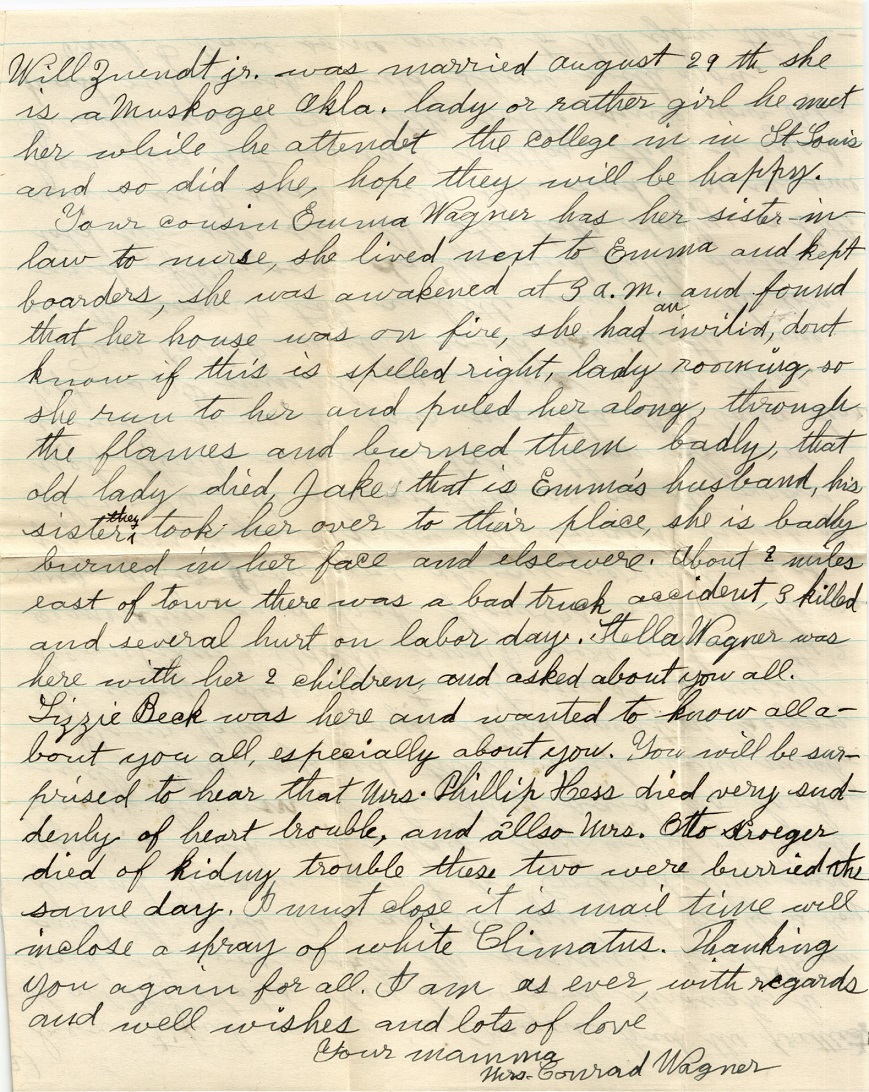 Will Zuendt jr. was married august 29 th she
is a Muskogee Okla. lady or rather girl he met
her while he attendet the college in in St Louis
and so did she, hope they will be happy.
Your cousin Emma Wagner has her sister-in-
law to nurse, she lived next to Emma and kept
boarders, she was awakened at 3 a.m. and found
that her house was on fire, she had an invilid, dont
know if this is spelled right, lady rooming, so
she run to her and puled her along, through
the flames and burned them badly, that
old lady died, Jake that is Emma's husband, his
sister, they took her over to their place, she is badly
burned in her face and elsewere. About 2 miles
east of town there was a bad truck accident, 3 killed
and several hurt on labor day. Stella Wagner was
here with her 2 children, and asked about you all.
Lizzie Beck was here and wanted to know all a-
bout you all, especially about you. You will be sur-
prised to hear that Mrs. Phillip Hess died very sud-
denly of heart trouble, and allso Mrs. Otto Kroeger
died of kidny trouble these two were burried the
same day. I must close it is mail time will
inclose a spray of white Climatus. Thanking
you again for all. I am as ever, with regards
and well wishes and lots of love
Your mamma
Mrs. Conrad Wagner